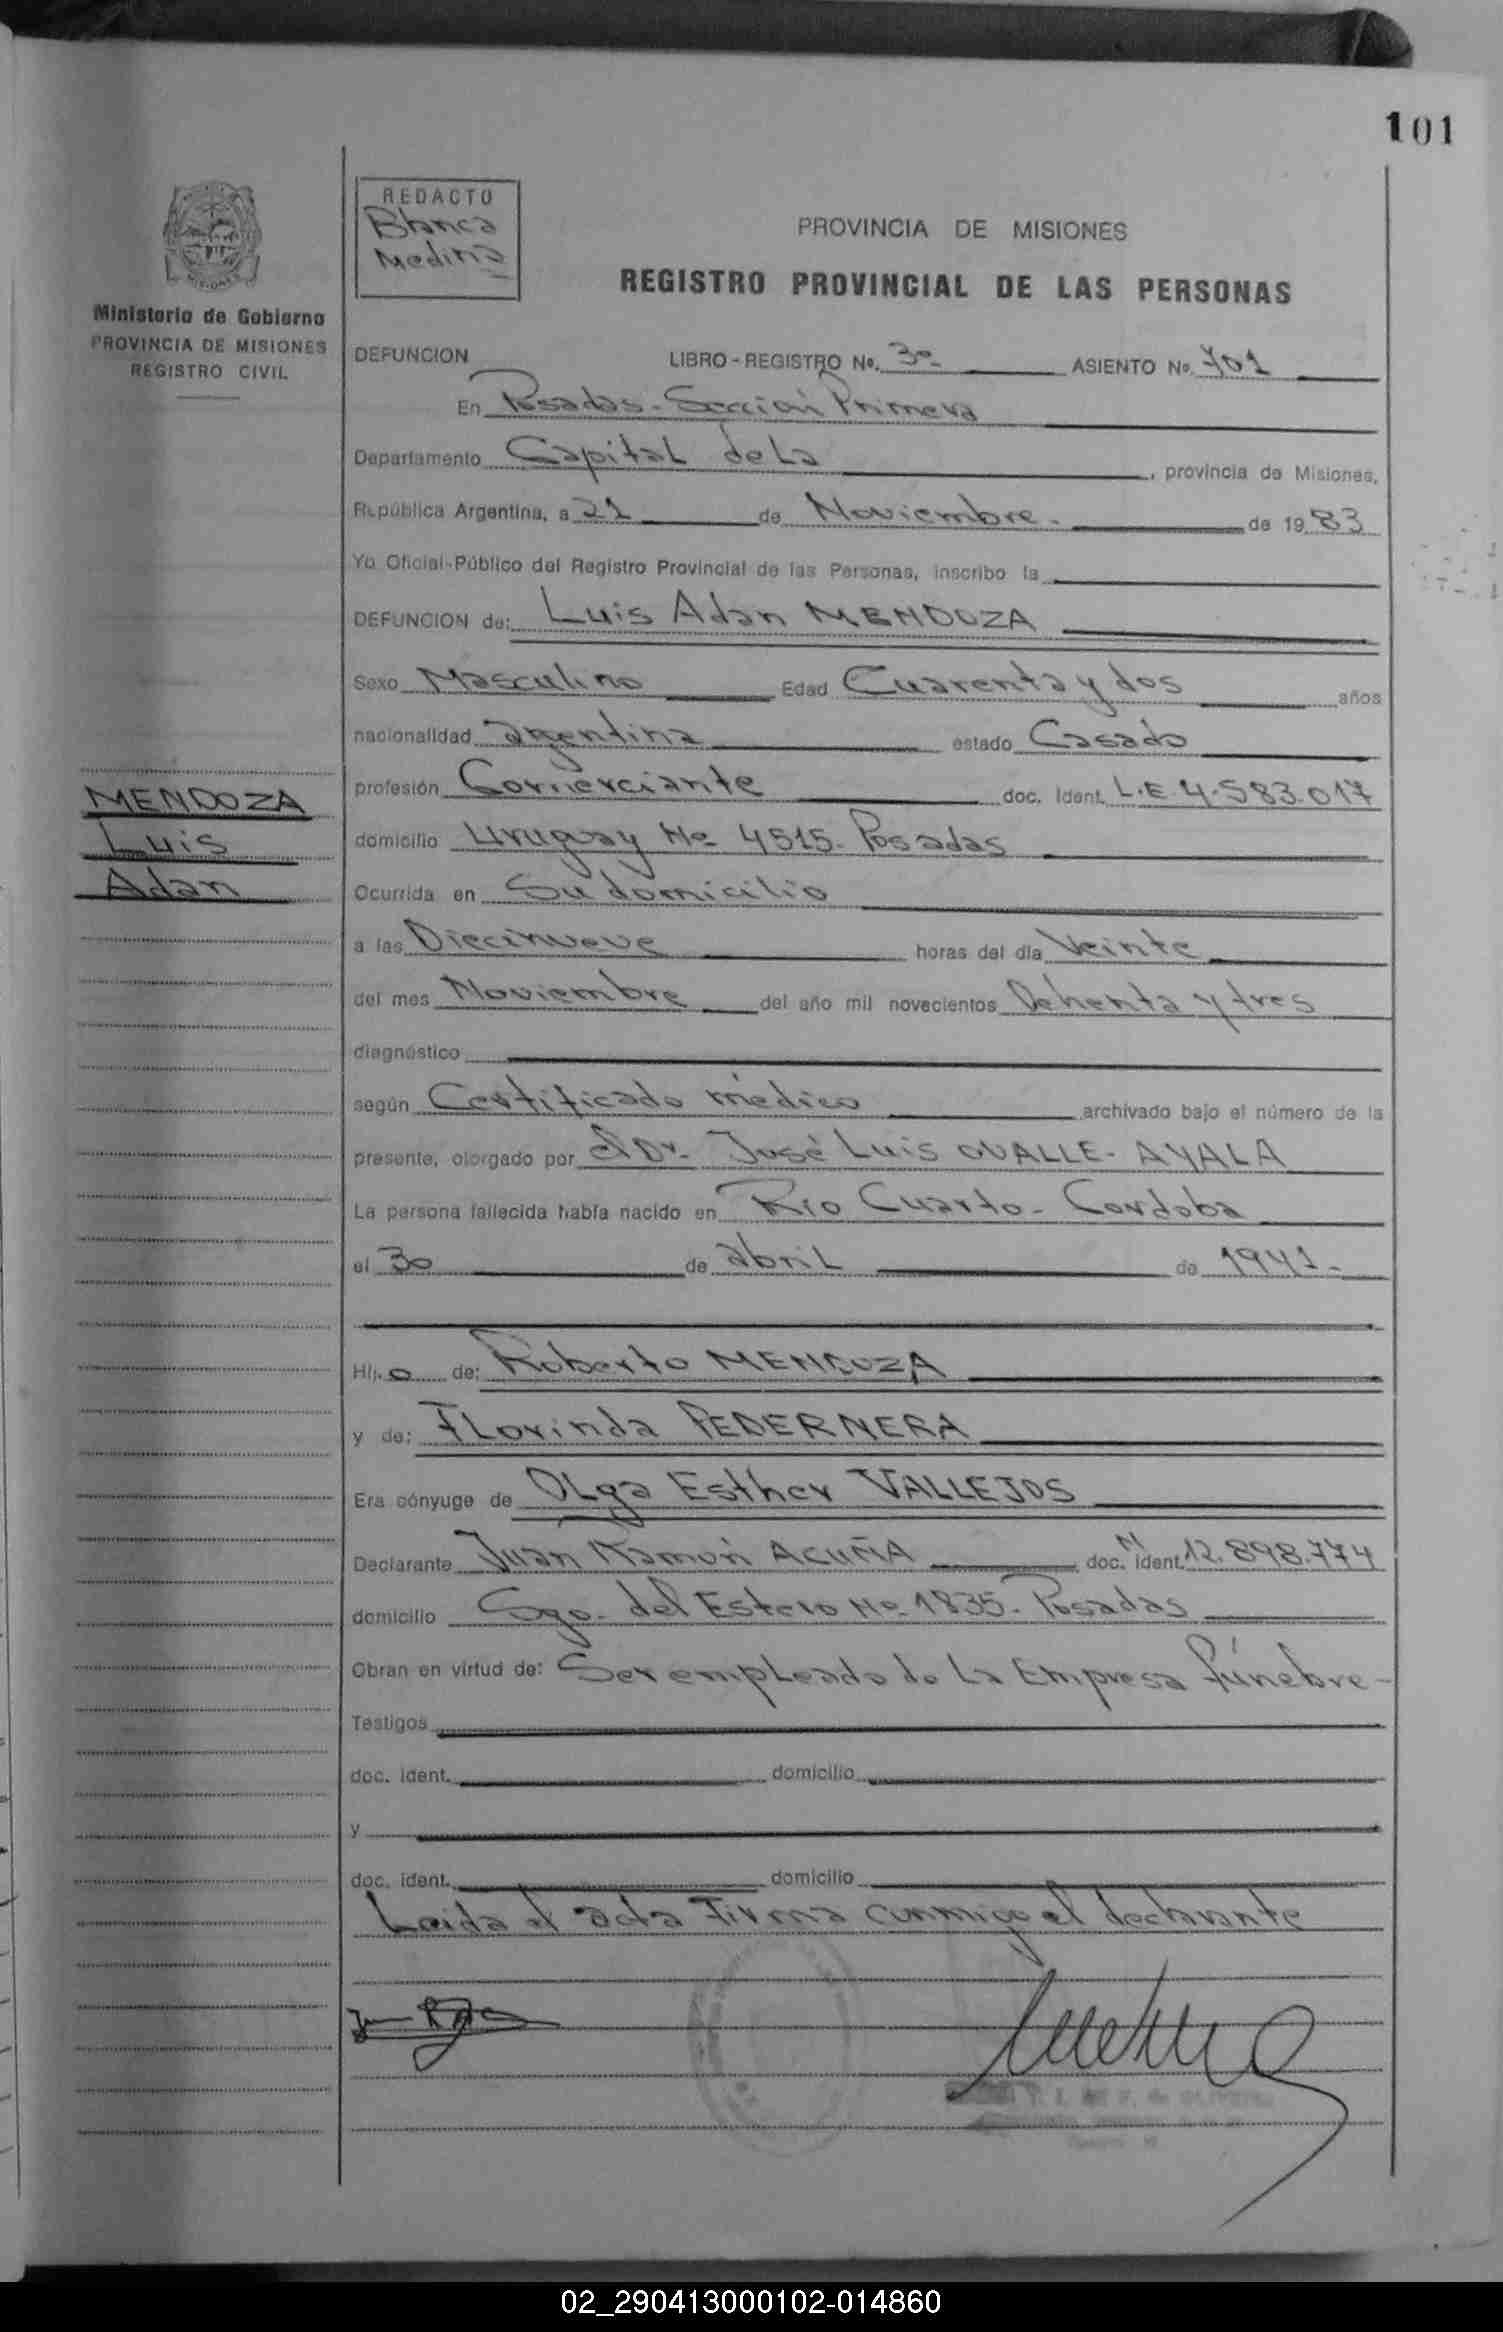 101
REDACTO
Blanca
Medina
PROVINCIA DE MISIONES
REGISTRO PROVINCIAL DE LAS PERSONAS
MISIONES
Ministerio de Gobierno
PROVINCIA DE MISIONES
REGISTRO CIVIL
DEFUNCION LIBRO-REGISTRO No. 3º ASIENTO No. 701
En Posadas - Sección Primera
Departamento Capital de La, provincia de Misiones,
República Argentina, a 21 de Noviembre. de 1983
Yo Oficial Público del Registro Provincial de las Personas, inscribo la
DEFUNCION de: Luis Adan MENDOZA
Sexo Masculino Edad Cuarenta y dos años
nacionalidad argentina estado Casado
MENDOZA
Luis
Adan
profesión Comerciante doc. ident. L.E 4.583.017
domicilio Uruguay Nº 4515. Posadas
Ocurrida en Su domicilio
a las Diecinueve horas del día Veinte
del mes Noviembre del año mil novecientos Ochenta y tres
diagnóstico
según Certificado médico archivado bajo el número de la
presente, otorgado por el Dr. José Luis OVALLE - AYALA
La persona fallecida había nacido en Río Cuarto - Cordoba
el 30 de abril de 1941.
Hijo de: Roberto MENDOZA
y de: Florinda PEDERNERA
Era cónyuge de Olga Esther VALLEJOS
Declarante Juan Ramón ACUÑA doc. N ident. 12.898.774
domicilio Sgo. del Estero Nº 1835. Posadas
Obran en virtud de: Ser empleado de La Empresa fúnebre -
Testigos
doc. ident. domicilio
y
doc. ident. domicilio
Leida el acta Firma conmigo el declarante
02_290413000102-014860